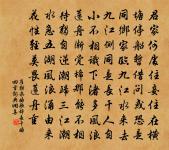 君家何處住妾住在橫
塘停船暫借問或恐是
同鄉家臨九江水來去
九江側同是長干人生
小不相識下渚多風浪
蓮舟漸覺稀那能不相
待獨自逆潮歸三江潮
水急五湖風浪湧由來
花性輕莫畏蓮舟重